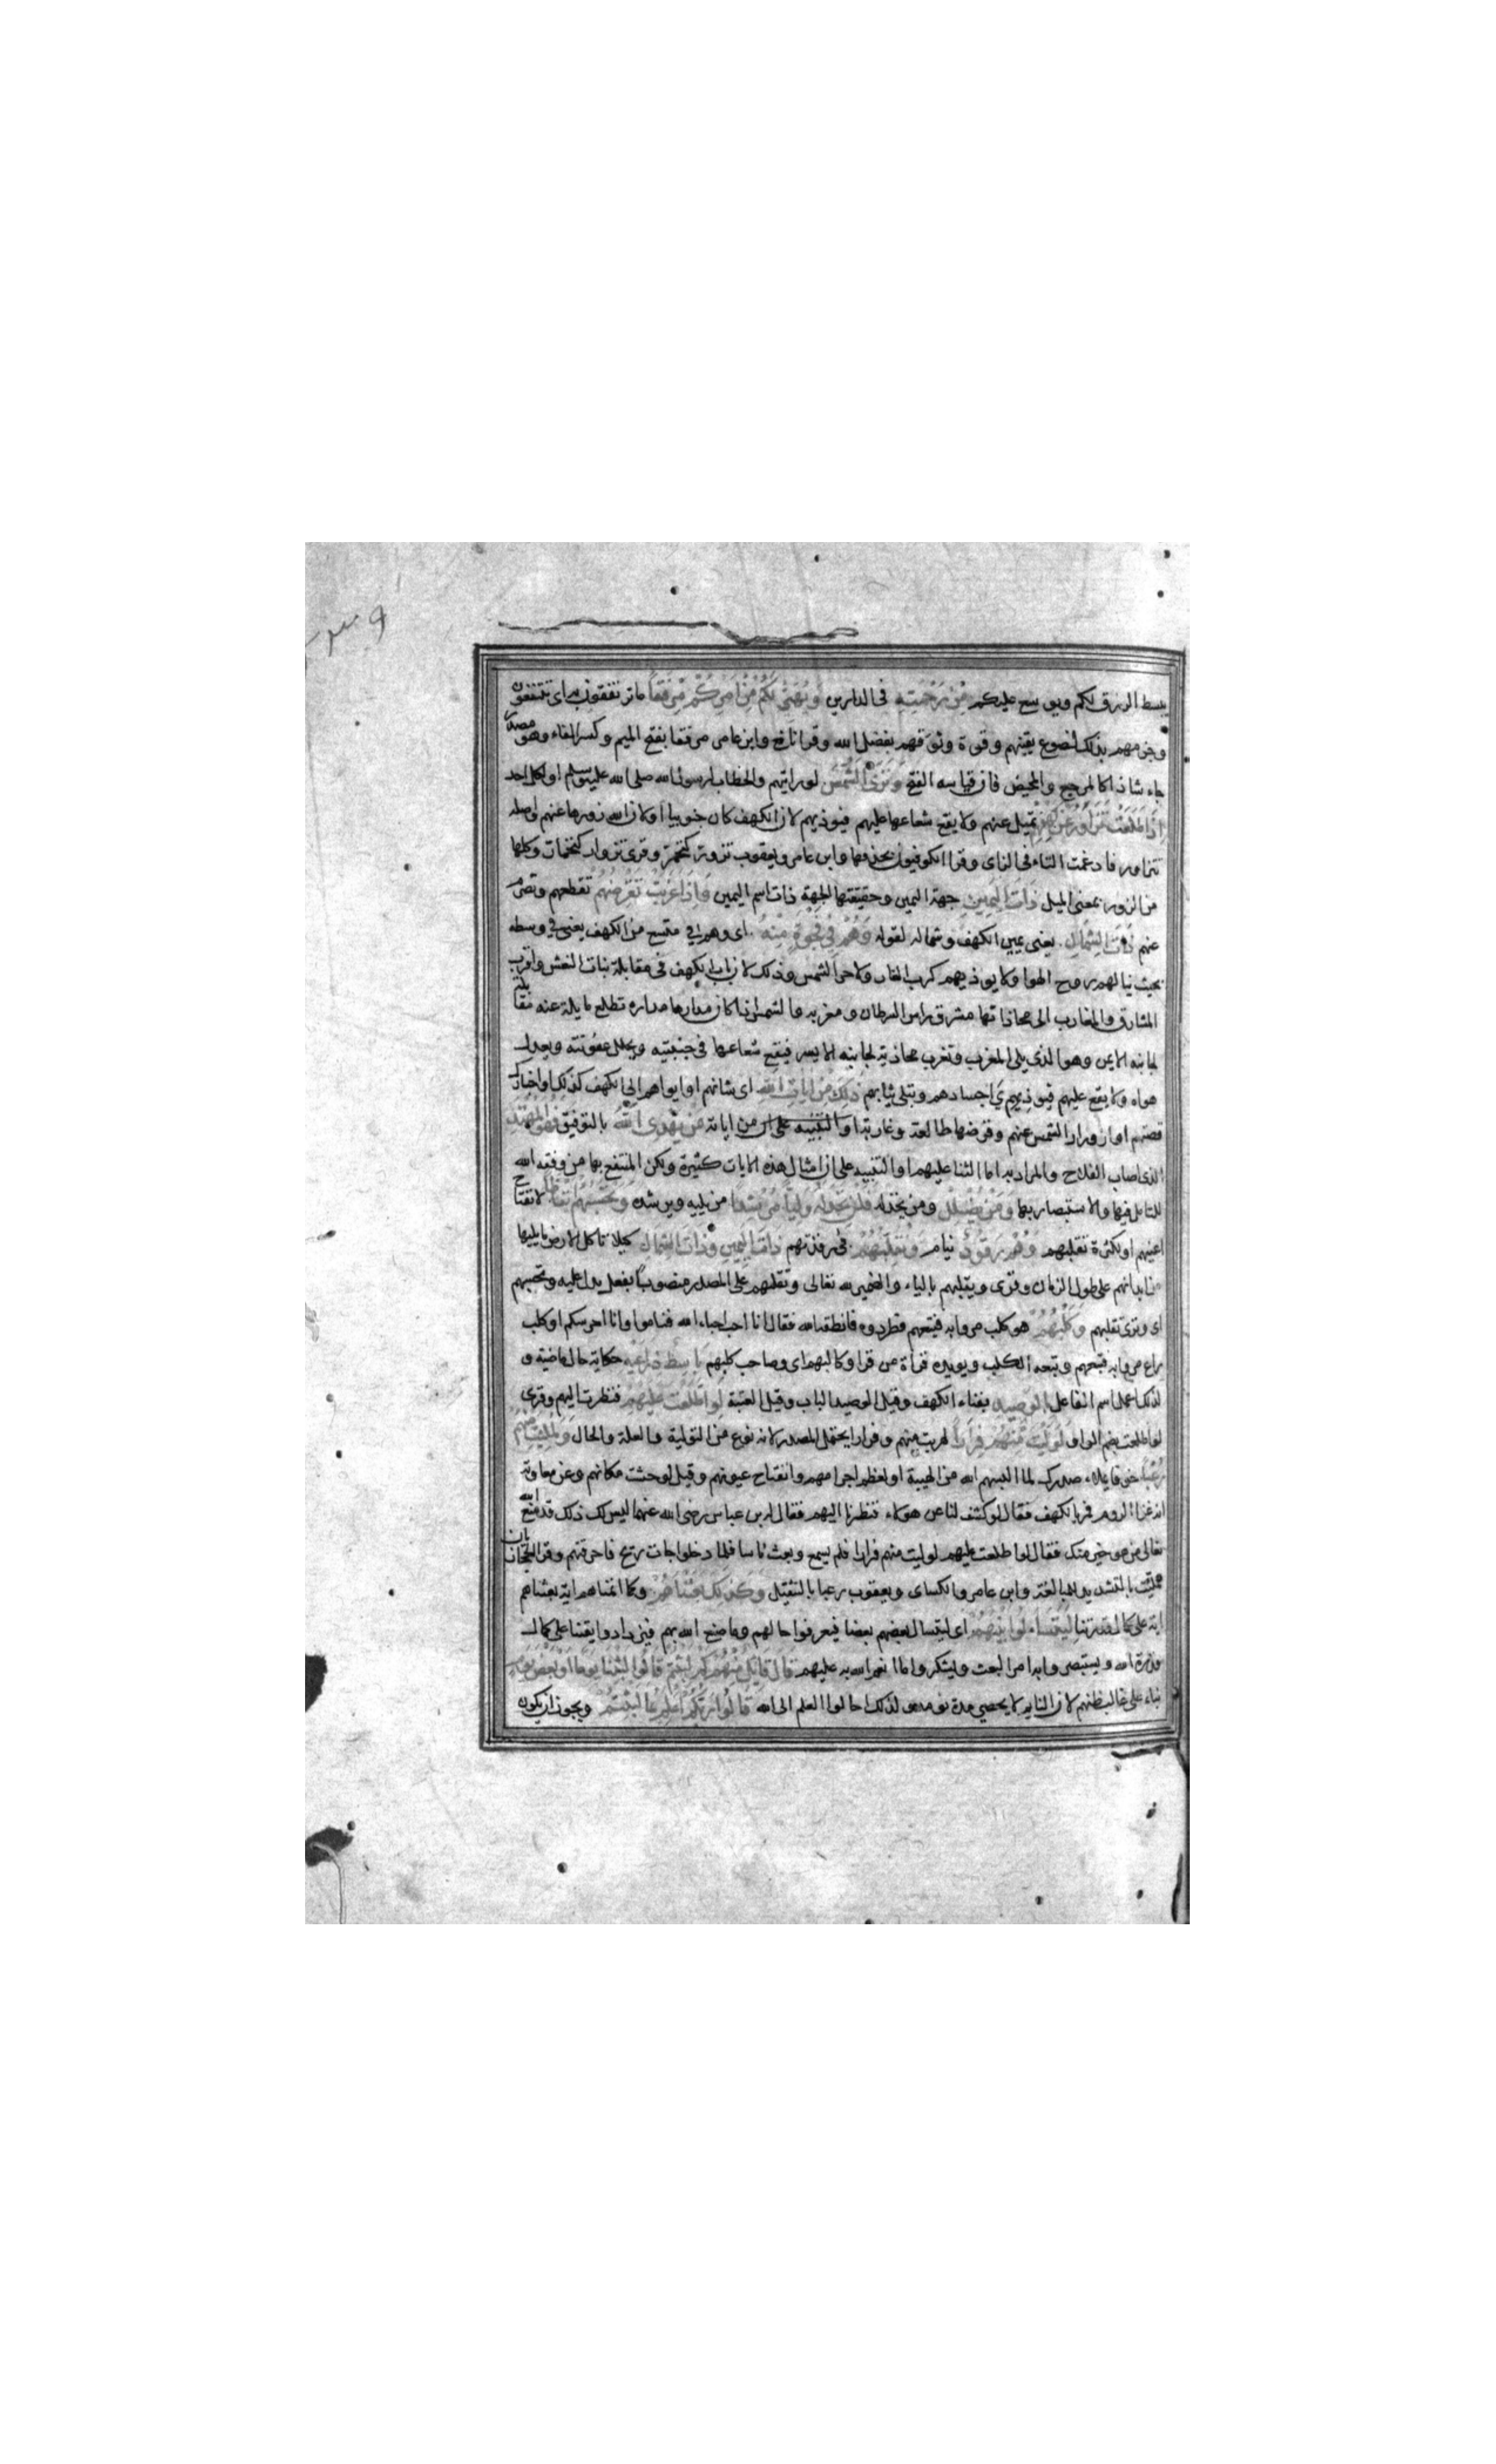 يبسط الرزق لكم ويوسع عليكم مِنْ رَحْمَتِهِ فى الدارين وَيُهَيِّئْ لَكُمْ مِنْ اَمْرِكُمْ مِرْفَقًا ما ترتفقون به اى تنتفعون
وجزمهم بذلك لنصوع يقينهم وقوة وثوقهم بفضل الله وقرا نافع وابن عامر مرفقا بفتح الميم وكسر الفاء وهو مصدر
جاء شاذا كالمرجع والمحيض فان قياسه الفتح وَتَرَى الشَّمْسَ لو رايتهم والخطاب لرسول الله صلى الله عليه وسلم او لكل احد
اِذَا طَلَعَتْ تَزَاوَرُ عَنْ كَهْفِهِمْ تميل عنهم ولا يقع شعاعها عليهم فيوذيهم لان الكهف كان جنوبيا او لان الله زورها عنهم واصله
تتزاور فادغمت التاء فى الزاى وقرا الكوفيون بحذفها وابن عامر ويعقوب تزور كتحمر وقرى تزوار كتحمار وكلها
من الزور بمعنى الميل ذَاتَ الْيَمِينِ جهة اليمين وحقيقتها الجهة ذات اسم اليمين وَاِذَا غَرَبَتْ تَقْرِضُهُمْ تقطعهم وتصرم
عنهم ذَاتَ الشِّمَالِ يعنى يمين الكهف وشماله لقوله وَهُمْ فِي فَجْوَةٍ مِنْهُ اى وهم في متسع من الكهف يعنى في وسطه
بحيث ينالهم روح الهوا ولا يوذيهم كرب الغار ولا حر الشمس وذلك لان باب الكهف فى مقابلة بنات النعش واقرب
المشارق والمغارب الى محاذاتها مشرق راس السرطان ومغربه والشمس اذا كان مدارها مداره تطلع مايلة عنه مقابلة
لجانبه الايمن وهو الذى يلى المغرب وتغرب محاذية لجانبه الايسر فيقع شعاعها فى جنبتيه ويحلل عفونته ويعدل
هواه ولا يقع عليهم فيوذي اجسادهم وتبلى ثيابهم ذلِكَ مِنْ ايَاتِ اللهِ اى شانهم او ايواهم الى الكهف كذلك او اخبارك
قصتهم او ازورار الشمس عنهم وقرضها طالعة وغاربة او التنبيه على ان من اياته مَنْ يَهْدِى اللهُ بالتوفيق فَهُوَ الْمُهْتَدِ
الذى اصاب الفلاح والمراد به اما الثنا عليهم او التنبيه على ان امثال هذه الايات كثيرة ولكن المنتفع بها من وفقه الله
للتامل فيها والاستبصار بها وَمَنْ يُضْلِلْ ومن يخذله فَلَنْ تَجِدَ لَهُ وَلِيًّا مُرْشِدًا من يليه ويرشده وَتَحْسَبُهُمْ اَيْقَاظًا لانفتاح
اعينهم او لكثرة تقلبهم وَهُمْ رُقُودٌ نيام وَنُقَلِّبُهُمْ فى رقدتهم ذَاتَ الْيَمِينِ وَذَاتَ الشِّمَالِ كيلا تاكل الارض ما يليها
من ابدانهم على طول الزمان وقرى ويقلبهم بالياء والضمير لله تعالى وتقلبهم على المصدر منصوبا بفعل يدل عليه وتحسبهم
اى وترى تقلبهم وَكَلْبُهُمْ هو كلب مروا به فتبعهم فطردوه فانطقه الله فقال انا احب احباء الله فناموا وانا احرسكم او كلب
راع مروا به فتبعهم وتبعه الكلب ويويده قراة من قرا وكالبهم اى وصاحب كلبهم بَاسِطٌ ذِرَاعَيْهِ حكاية حال ماضية و
لذلك اعمل اسم الفاعل بِالْوَصِيدِ بفناء الكهف وقيل الوصيد الباب وقيل العتبة لَوِ اطَّلَعْتَ عَلَيْهِمْ فنظرت اليهم وقرى
لو اطلعت بضم الواو لَوَلَّيْتَ مِنْهُمْ فِرَارًا لهربت منهم وفرارا يحتمل المصدر لانه نوع من التولية والعلة والحال وَلَمُلِئْتَ مِنْهُمْ
رُعْبًا خوفا يملاء صدرك لما البسهم الله من الهيبة او لعظم اجرامهم وانفتاح عيونهم وقيل لوحشت مكانهم وعن معاوية
انه غزا الروم فمر بالكهف فقال لو كشف لنا عن هولاء فنظرنا اليهم فقال له بن عباس رضى الله عنهما ليس لك ذلك قد منع الله
تعالى من هو خير منك فقال لو اطلعت عليهم لوليت منهم فرارا فلم يسمع وبعث ناسا فلما دخلوا جات ريح فاحرقتهم وقرا الحجازيان
لملئت بالتشديد للمبالغة وابن عامر والكساى ويعقوب رعبا بالتثقيل وَكَذلِكَ بَعَثْنَاهُمْ وكما انمناهم اية بعثناهم
اية على كمال قدرتنا لِيَتَسَاءَلُوا بَيْنَهُمْ اى ليتسال بعضهم بعضا فيعرفوا حالهم وما صنع الله بهم فيزدادوا يقينا على كمال
قدرة الله ويستبصروا به امر البعث ويشكروا ما انعم الله به عليهم قَالَ قَائِلٌ مِنْهُمْ كَمْ لَبِثْتُمْ قَالُوا لَبِثْنَا يَوْمًا اَوْ بَعْضَ يَوْمٍ
بناء على غالب ظنهم لان النايم لا يحصي مدة نومه ولذلك احالوا العلم الى الله قَالُوا رَبُّكُمْ اَعْلَمُ بِمَا لَبِثْتُمْ ويجوز ان يكون